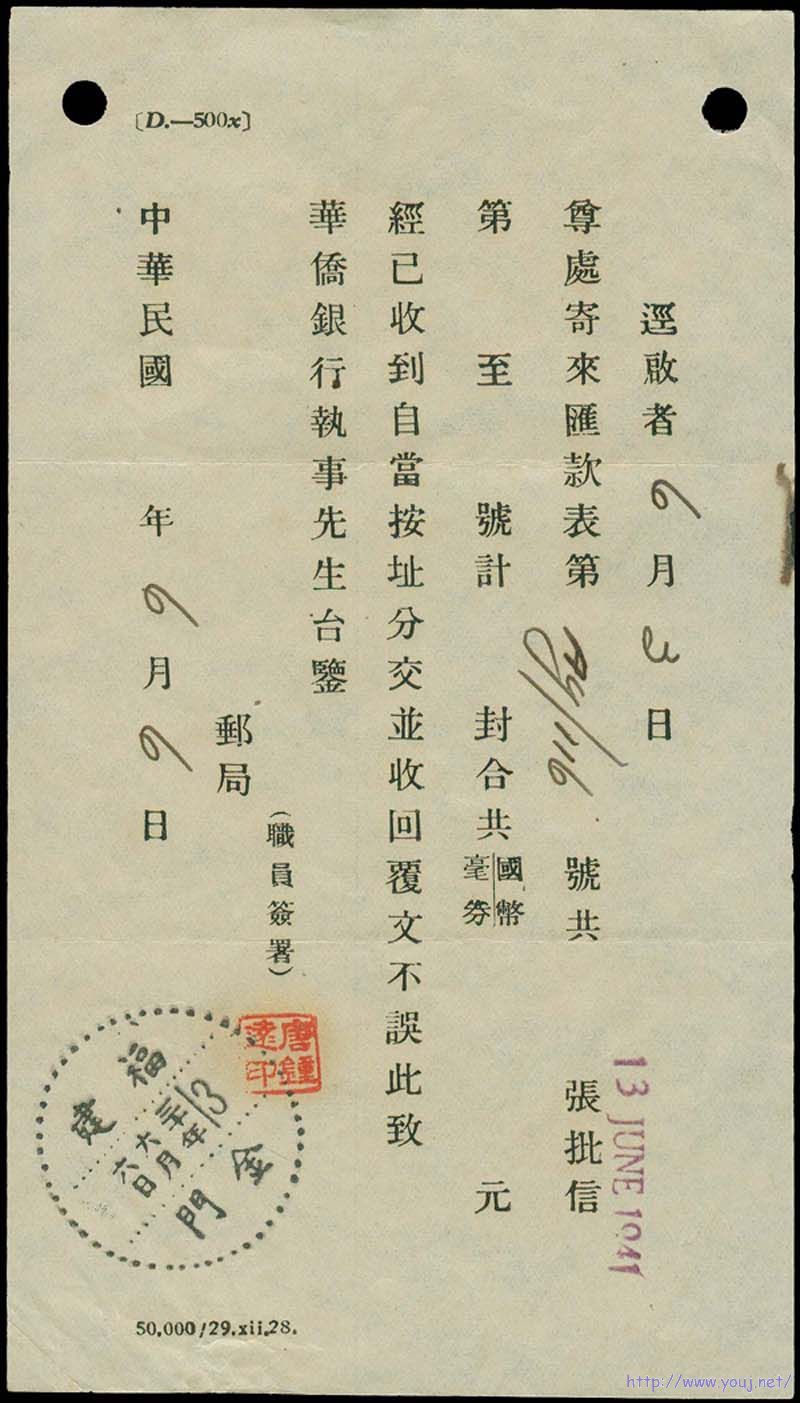 〔D.—500x〕
逕啟者 月 日
尊處寄來匯款表第 號共 張批信
第 至 號計 封合共國幣毫券 元
經已收到自當按址分交並收回覆文不誤此致
華僑銀行執事先生台鑒
郵局
(職員簽署)
中華民國 年 月 日
13 JUNE 1941
唐鍾
印
福建
金門
年
六月
六日
50,000/29.xii.28.
http://www.youj.net/